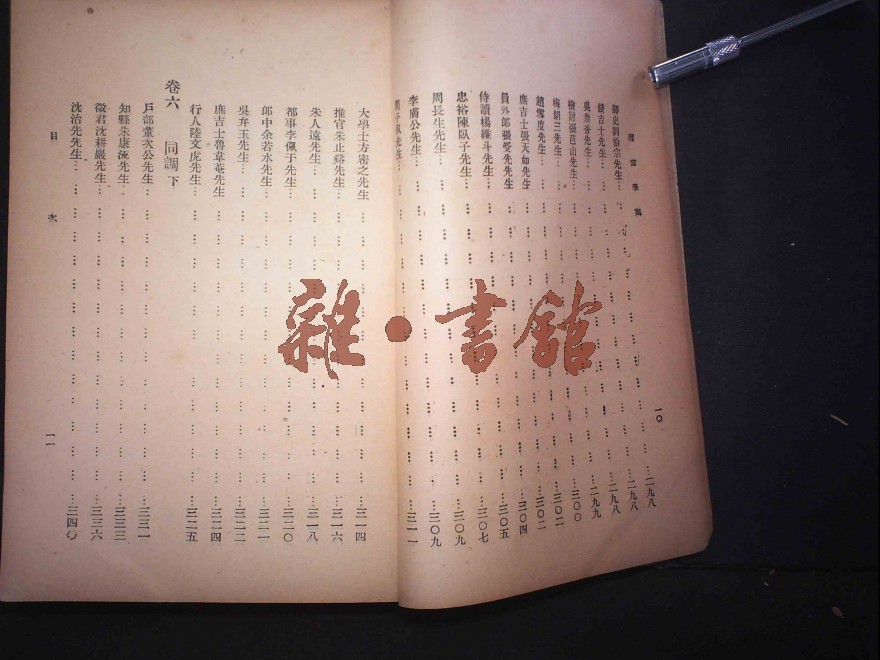 學案
一〇
御史劉伯宗先生………二九八
吉士先生………二九八
先生………二九八
檢討張芑山先生………二九九
梅朗三先生………三〇〇
趙雪度先生………三〇二
庶吉士張天如先生………三〇二
員外郎張受先先生………三〇四
侍讀楊維斗先生………三〇五
忠裕陳臥子先生………三〇七
周長生先生………三〇九
李廣公先生………三〇九
先生………三一一
大學士方密之先生………三一四
推官朱止谿先生………三一六
朱人遠先生………三一八
都事李佩于先生………三二〇
郎中余若水先生………三二一
吳弁玉先生………三二二
庶吉士魯韋菴先生………三二四
行人陸文虎先生………三二五
卷六 同調下
戶部董次公先生………三三一
知縣朱康流先生………三三三
徵君沈耕巖先生………三三六
沈治先先生………三四〇
目次
一一
雜·書館